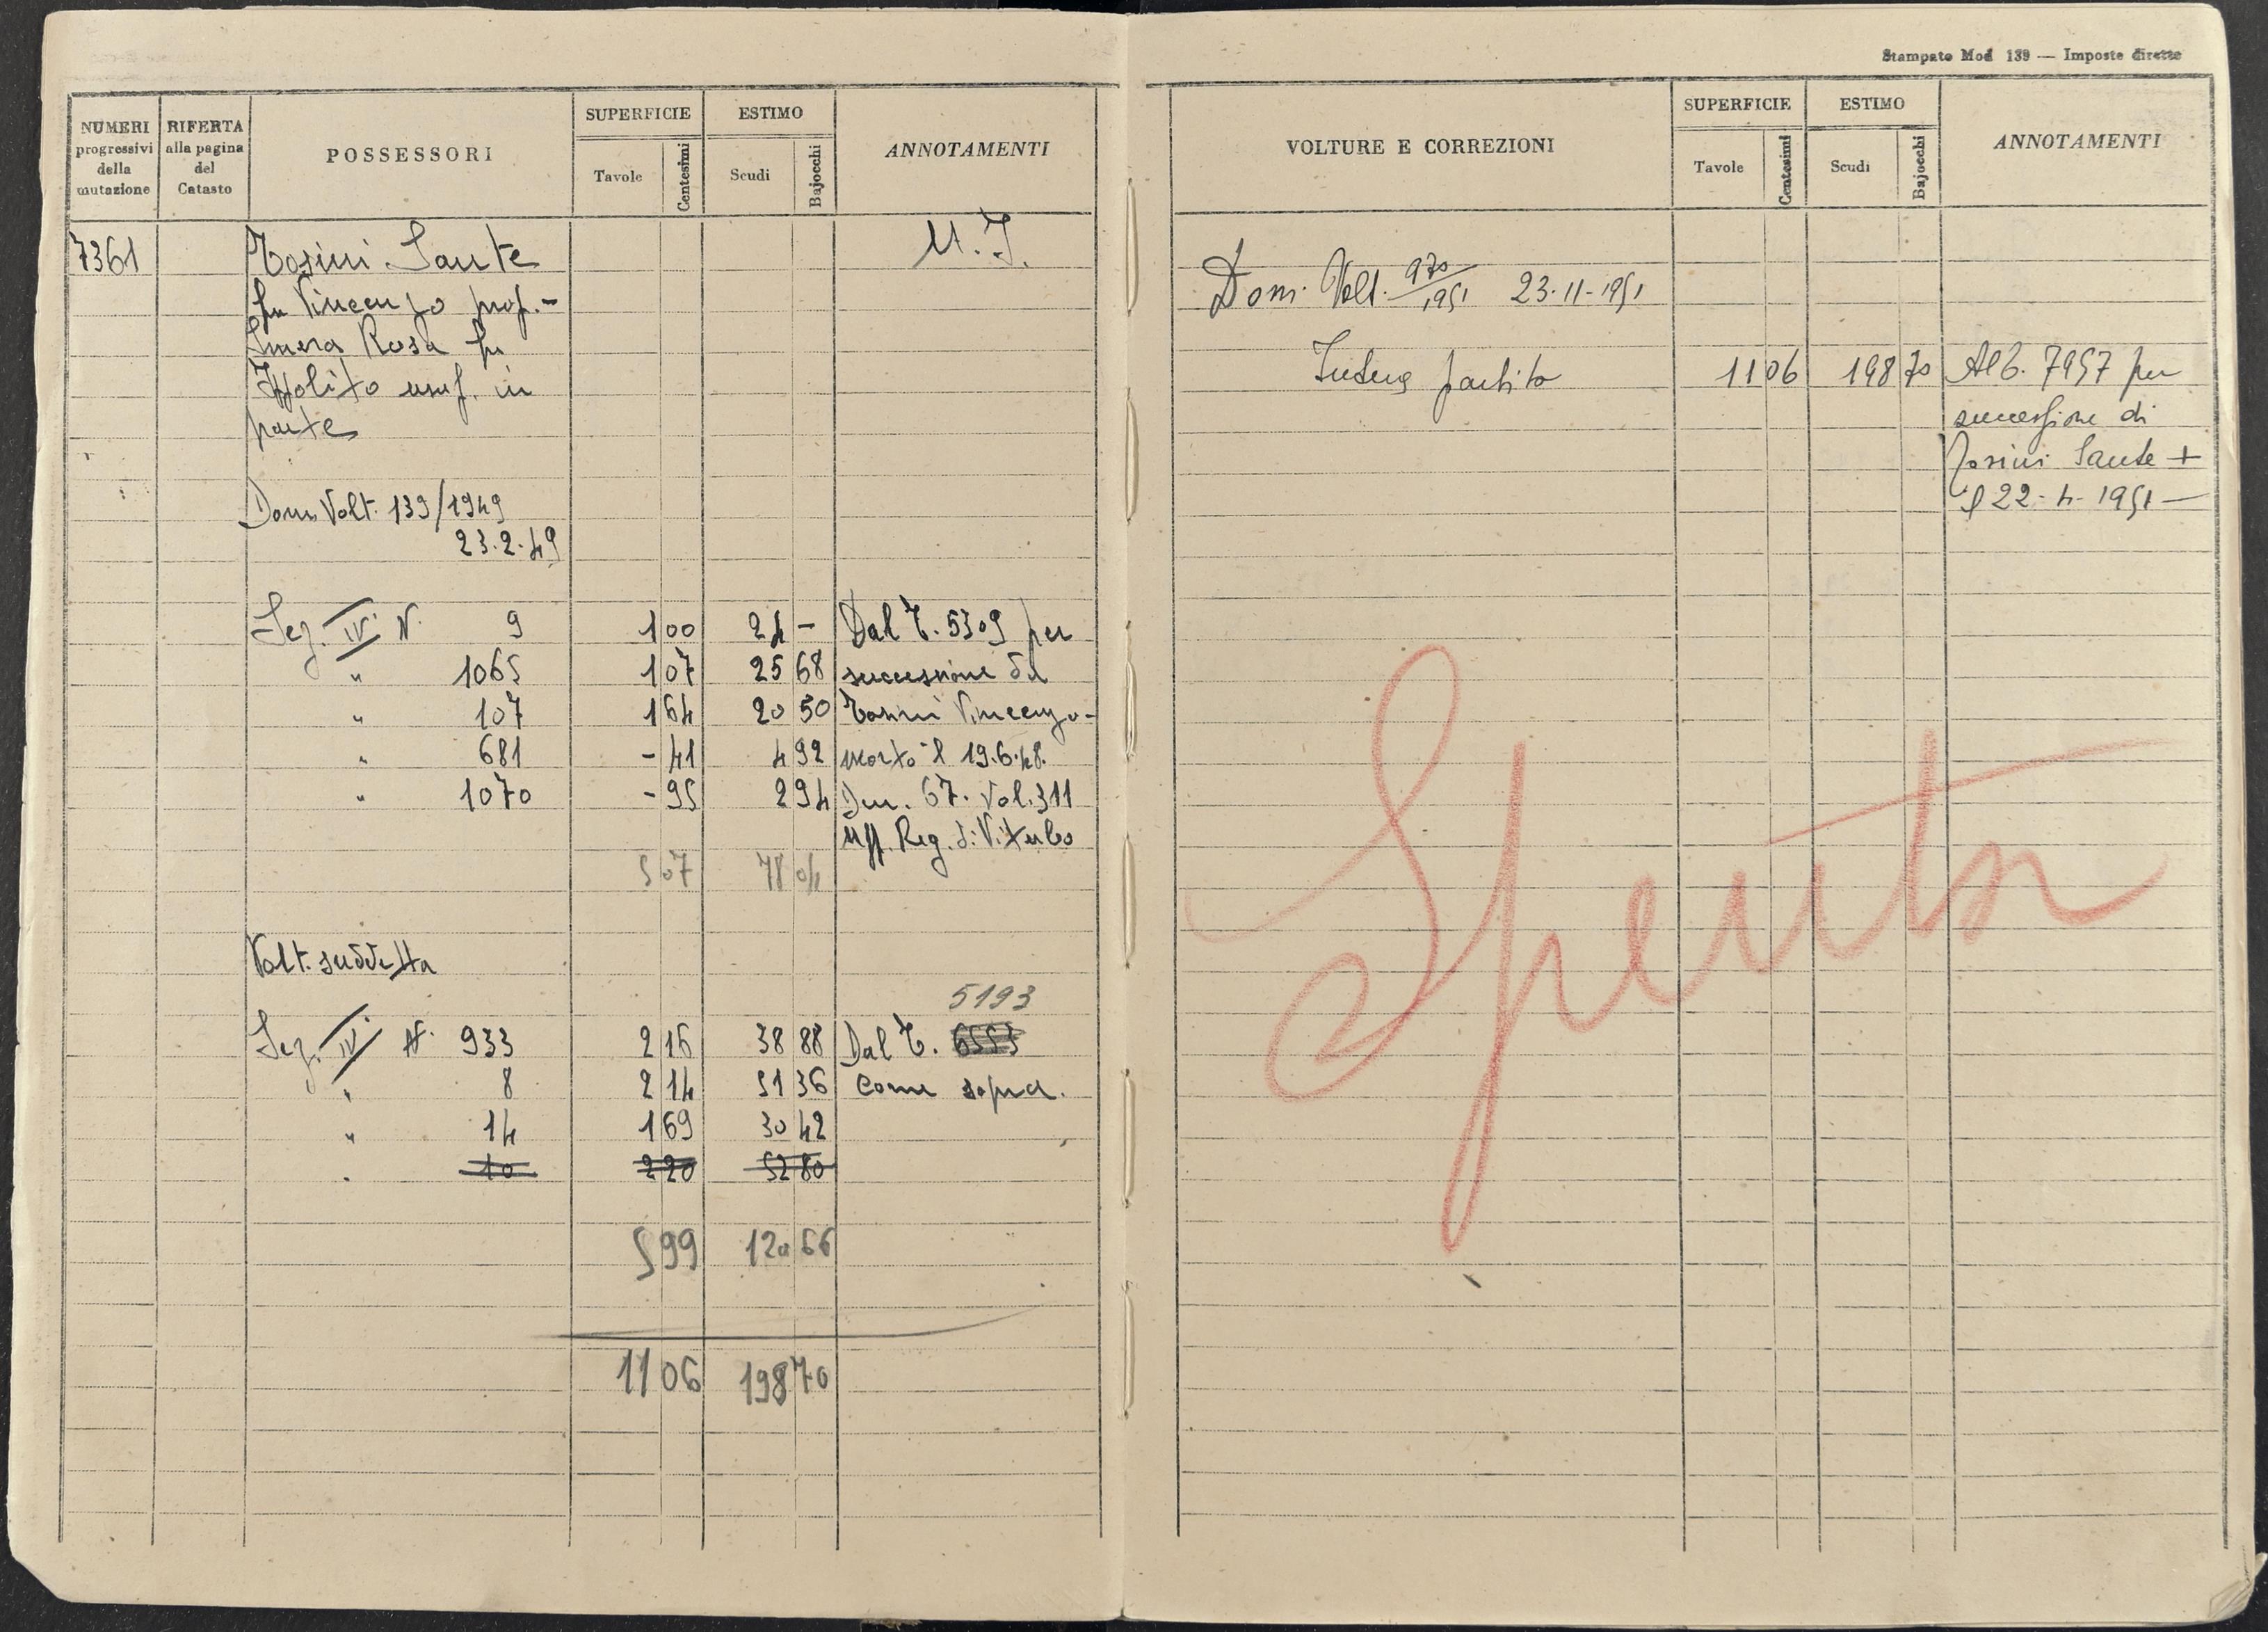 Stampato Mod 139 — Imposte dirette
NUMERI progressivi della mutazione
RIFERTA alla pagina del Catasto
POSSESSORI
SUPERFICIE
Tavole Centesimi
ESTIMO
Scudi Bajocchi
ANNOTAMENTI
7361 Tosini Sante U. I.
fu Vincenzo prop. -
Rosa fu
Ippolito usuf. in
parte
Dom. Volt. 139/1949
23.2.49
Sez. IV N. 9 1 00 24 - Dal T. 5309 per
" 1065 1 07 25 68 successione di
" 107 1 64 20 50 Tosini Vincenzo -
" 681 - 41 4 92 morto il 19.6.48.
" 1070 - 95 2 94 Den. 67. Vol. 311
Uff. Reg. di Viterbo
5 07 78 04
Volt. suddetta
5193
Sez. IV N. 933 2 16 38 88 Dal T. 6553
" 8 2 14 51 36 come sopra.
" 14 1 69 30 42
" 10 2 20 52 80
5 99 120 66
11 06 198 70
VOLTURE E CORREZIONI
SUPERFICIE
Tavole Centesimi
ESTIMO
Scudi Bajocchi
ANNOTAMENTI
Dom. Volt. 970/1951 23-11-1951
Intera partita 11 06 198 70 Alb. 7957 per
successione di
Tosini Sante +
il 22-4-1951 —
Spenta